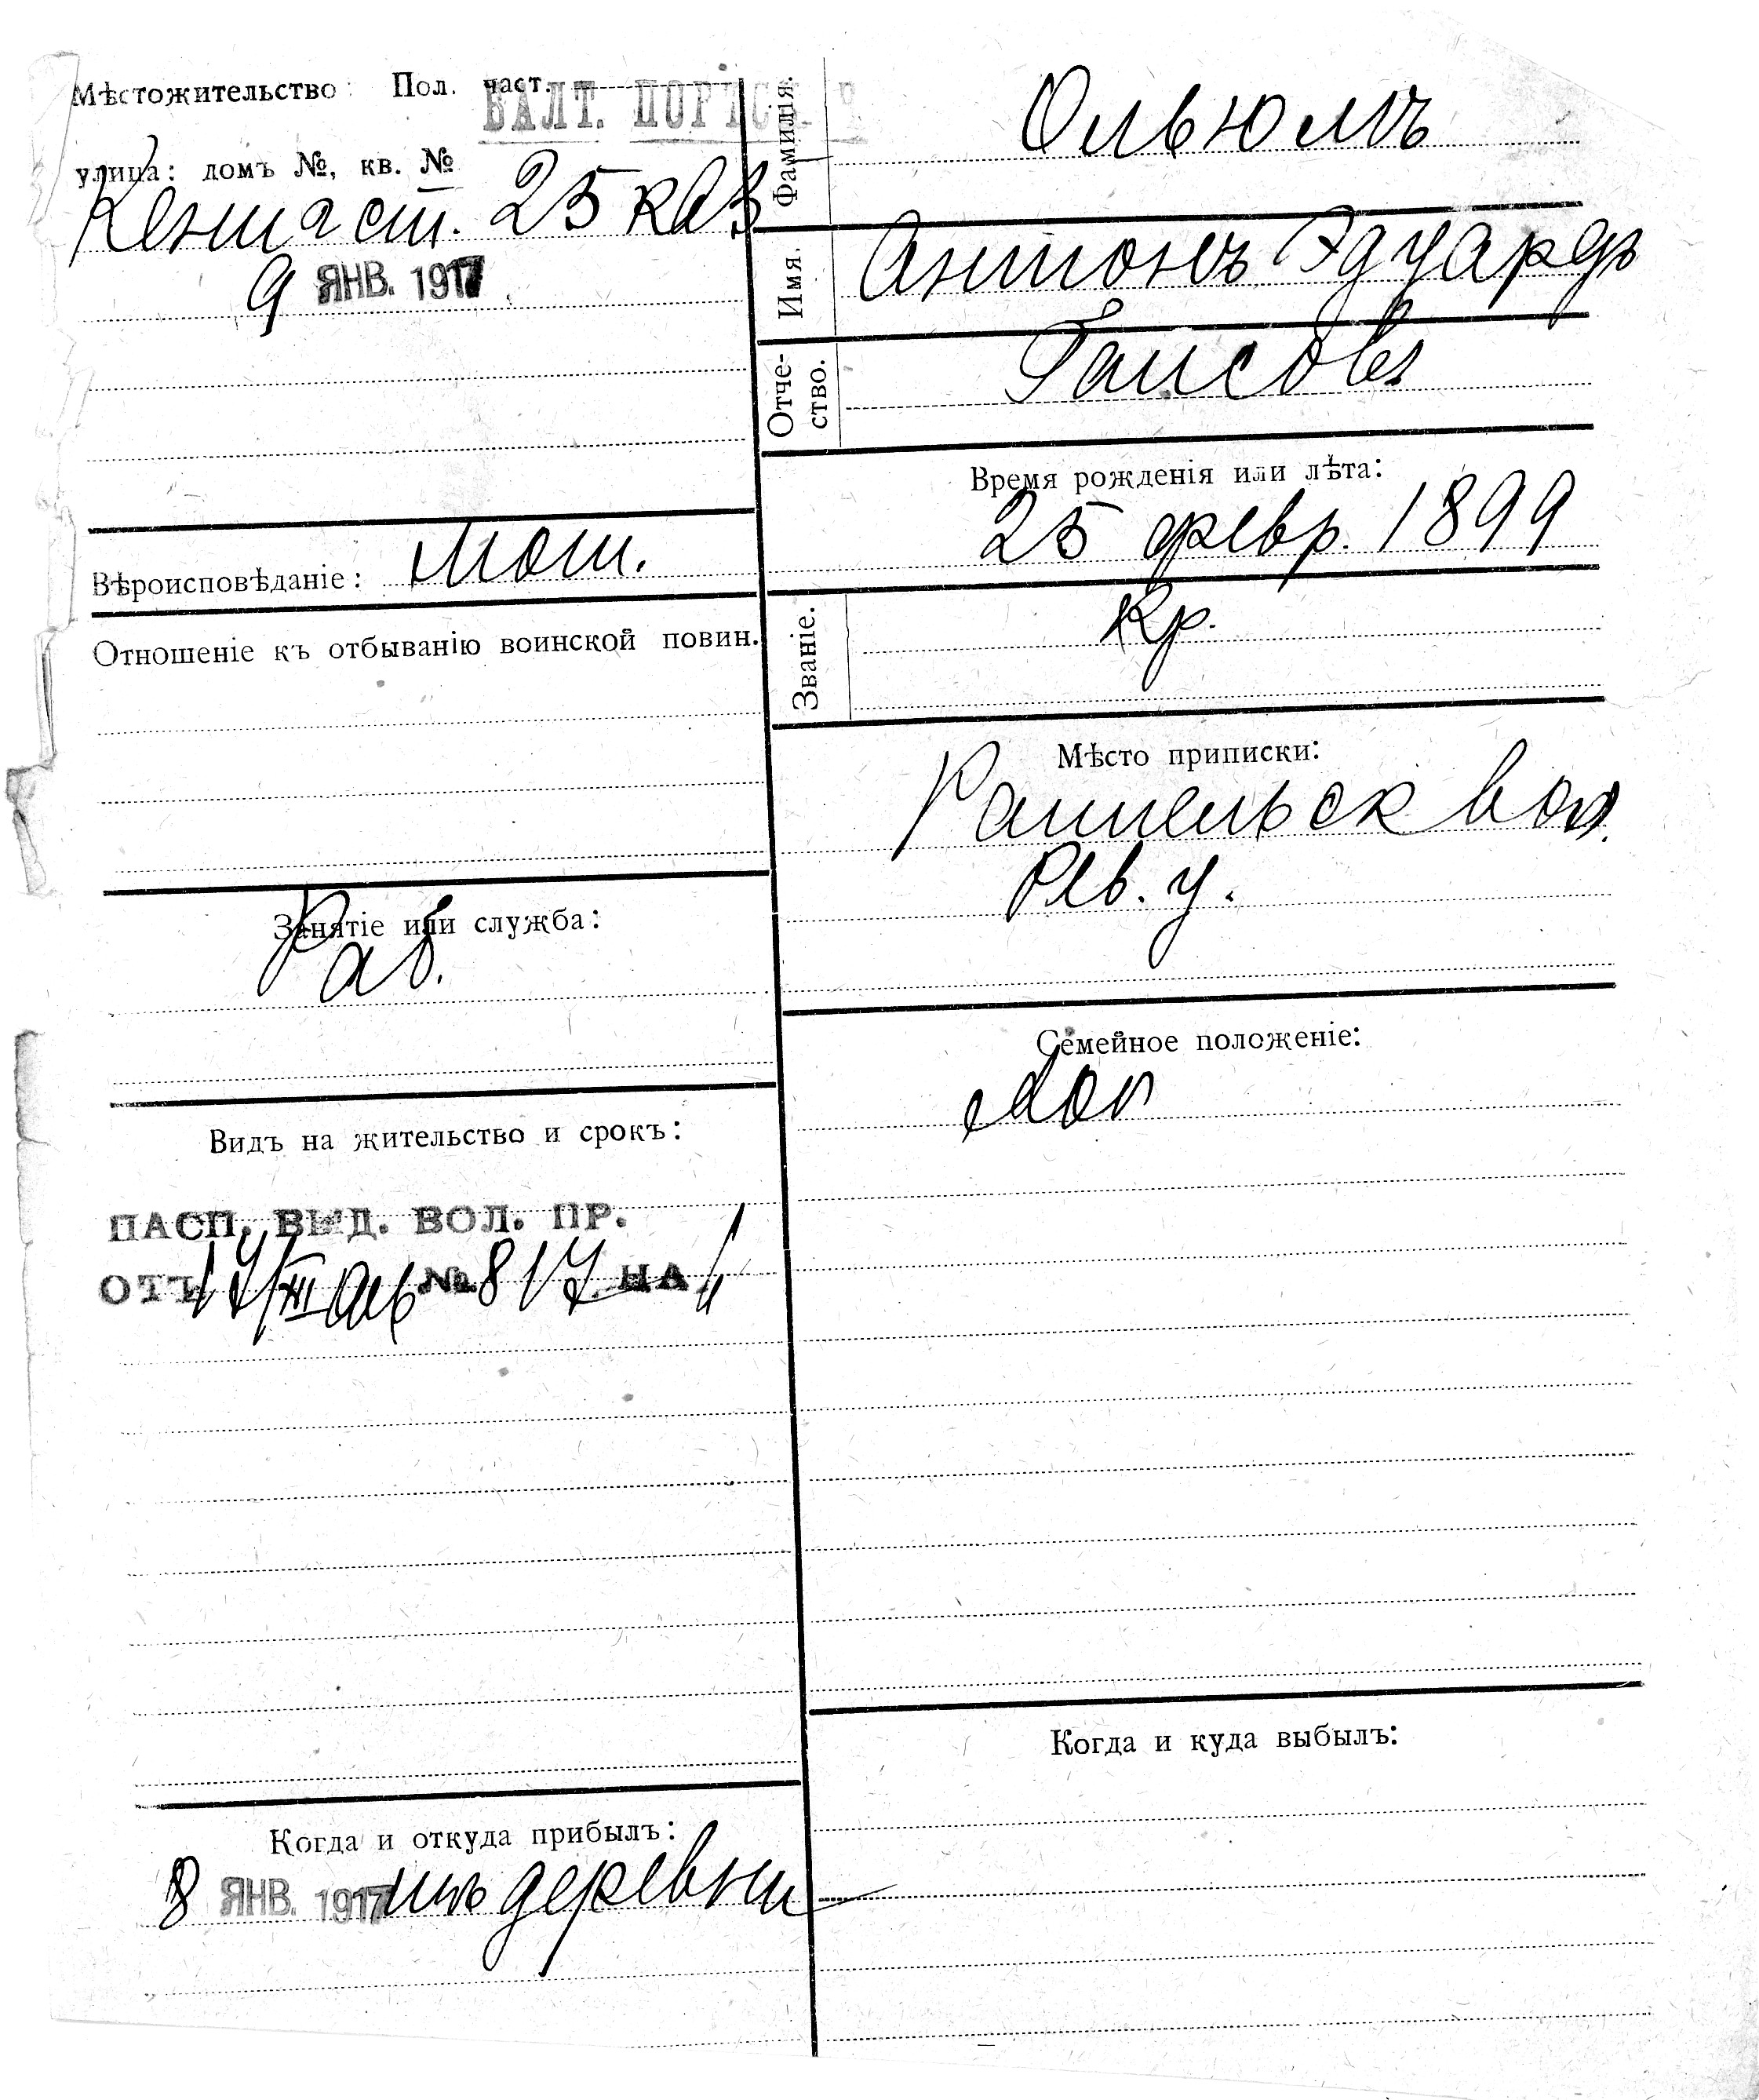 Мѣстожительство: Пол. част.
БАЛТ. ПОРТ
улица: домъ №, кв. №
25 каз
9 ЯНВ. 1917
Вѣроисповѣданіе: Лют.
Отношеніе къ отбыванію воинской повин.
Занятіе или служба:
Раб.
Видъ на жительство и срокъ:
ПАСП. ВЫД. ВОЛ. ПР.
ОТЪ № 817 НА 1
Когда и откуда прибылъ:
8 ЯНВ. 1917 изъ деревни
Фамилія.
Имя. Антонъ Эдуардъ
Отче-
ство. Гансовъ
Время рожденія или лѣта:
25 февр. 1899
Званіе. Кр.
Мѣсто приписки:
вол.
Рев. у.
Семейное положеніе:
хол
Когда и куда выбылъ: